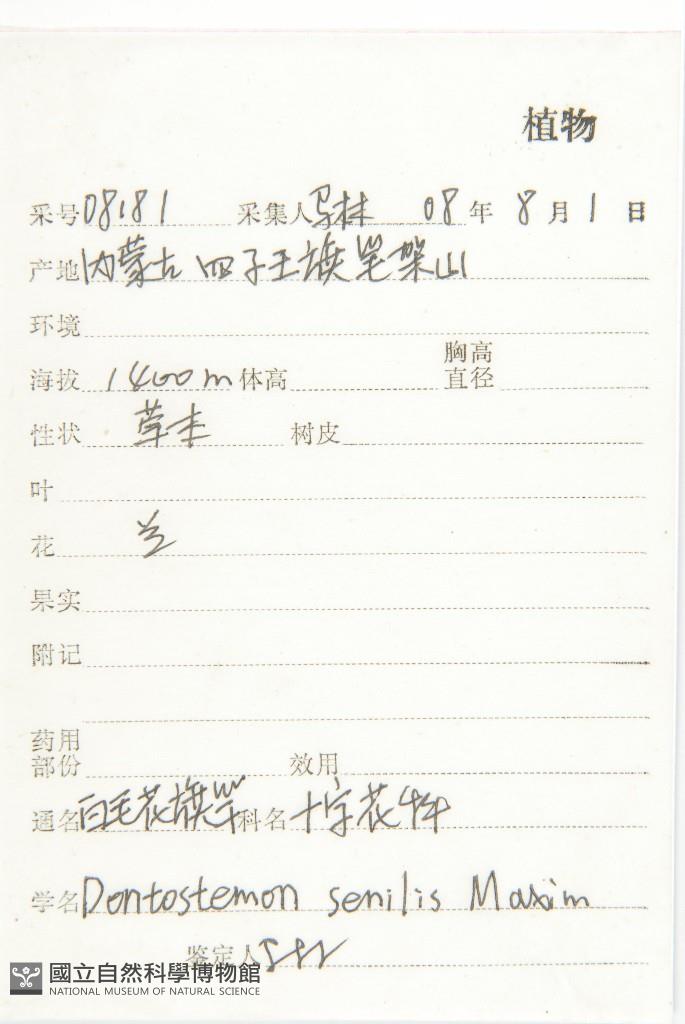 植物
采号 08181 采集人 马林 08 年 8 月 1 日
产地 内蒙古 四子王旗笔架山
环境
海拔 1400m 体高 胸高直径
性状 草本 树皮
叶
花 兰
果实
附记
药用部份 效用
通名 白毛花旗竿 科名 十字花科
学名 Dontostemon senilis Maxim
鉴定人
國立自然科學博物館
NATIONAL MUSEUM OF NATURAL SCIENCE